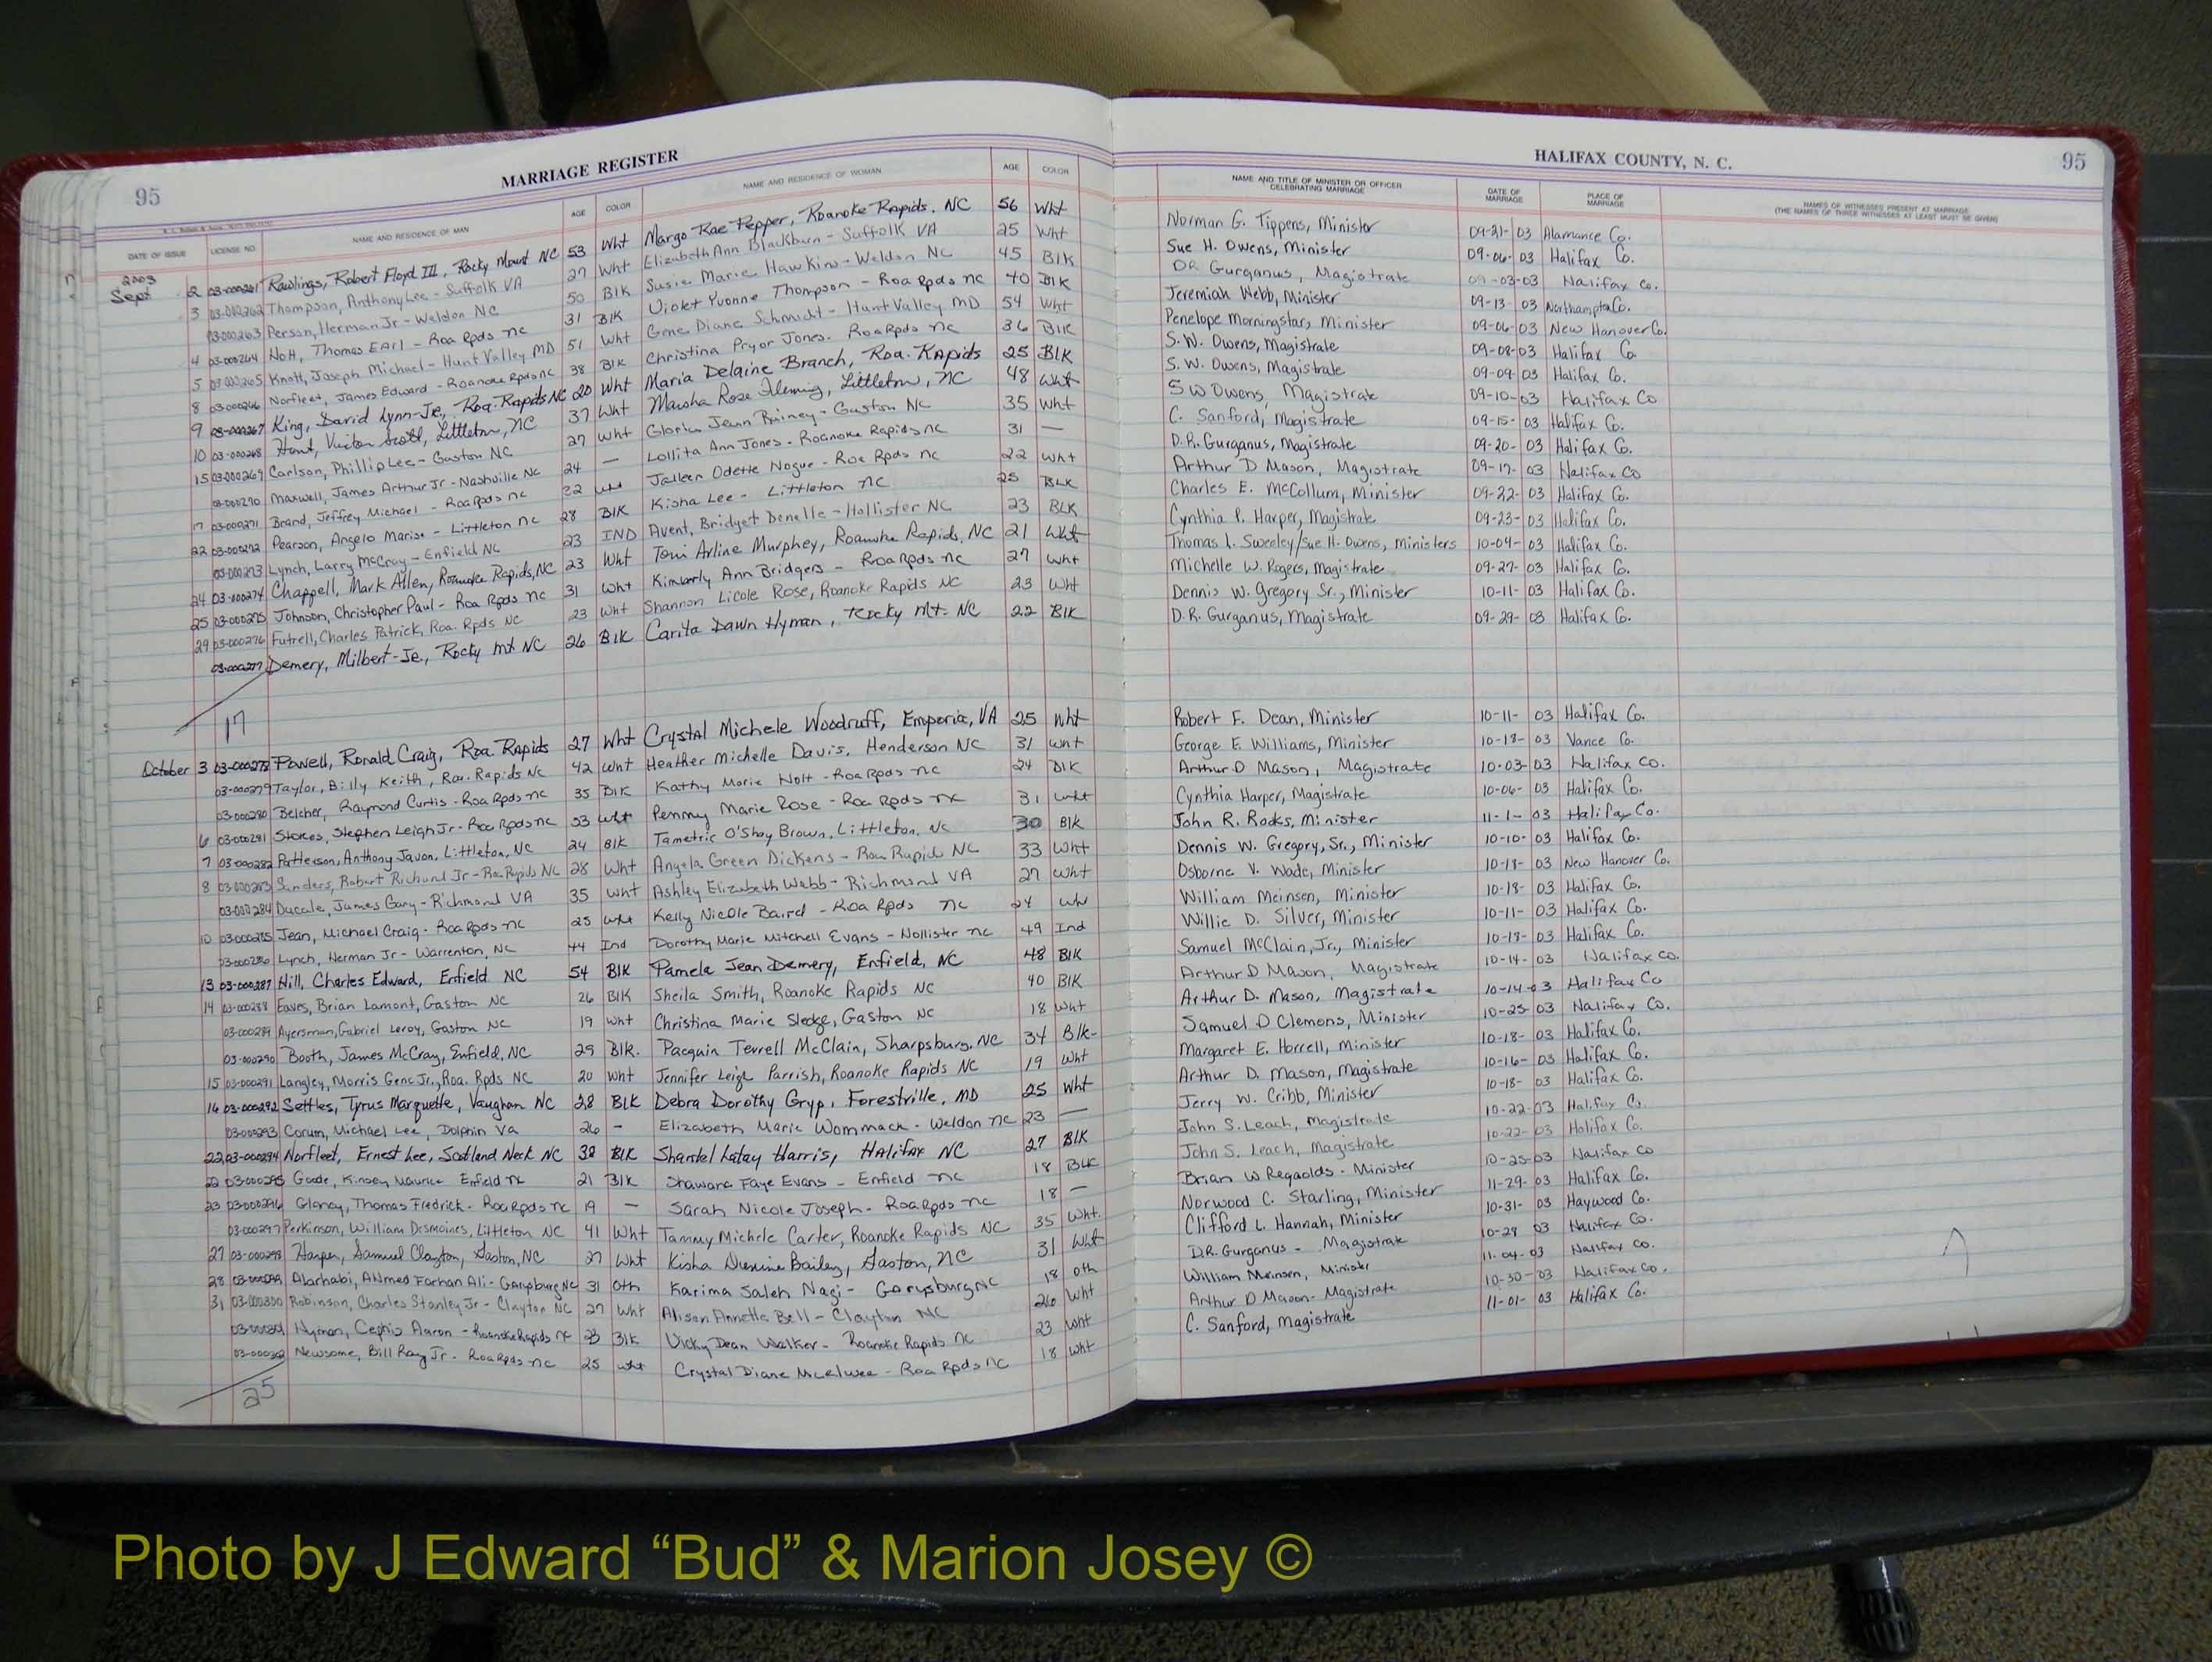 95 MARRIAGE REGISTER
DATE OF ISSUE LICENSE NO. NAME AND RESIDENCE OF MAN AGE COLOR NAME AND RESIDENCE OF WOMAN AGE COLOR
2003
Sept 2 03-000261 Rawlings, Robert Floyd III, Rocky Mount NC 53 Wht Margo Rae Pepper, Roanoke Rapids, NC 56 Wht
3 03-000262 Thompson, Anthony Lee - Suffolk VA 27 Wht Elizabeth Ann Blackburn - Suffolk VA 25 Wht
03-000263 Person, Herman Jr - Weldon NC 50 Blk Susie Marie Hawkins - Weldon NC 45 Blk
4 03-000264 Holt, Thomas Earl - Roa Rpds nc 31 Blk Violet Yvonne Thompson - Roa Rpds nc 40 Blk
5 03-000265 Knott, Joseph Michael - Hunt Valley MD 51 Wht Gene Diane Schmidt - Hunt Valley MD 54 Wht
8 03-000266 Norfleet, James Edward - Roanoke Rpds nc 38 Blk Christina Pryor Jones - Roa Rpds nc 36 Blk
9 03-000267 King, David Lynn-Jr., Roa. Rapids NC 20 Wht Maria Delaine Branch, Roa. Rapids 25 Blk
10 03-000268 Hunt, Scott, Littleton, NC 37 Wht Marsha Rose Fleming, Littleton, NC 48 Wht
15 03-000269 Carlson, Phillip Lee - Gaston NC 27 Wht Gloria Jean Rainey - Gaston NC 35 Wht
03-000270 Maxwell, James Arthur Jr - Nashville NC 24 — Lollita Ann Jones - Roanoke Rapids nc 31 —
17 03-000271 Brand, Jeffrey Michael - Roa Rpds nc 22 wht Jalleen Odette Nogue - Roa Rpds nc 22 wht
22 03-000272 Pearson, Angelo - Littleton nc 28 Blk Kisha Lee - Littleton nc 25 Blk
03-000273 Lynch, Larry McCray - Enfield NC 23 IND Avent, Bridget Denelle - Hollister NC 23 BLK
24 03-000274 Chappell, Mark Allen, Roanoke Rapids, NC 23 Wht Toni Arline Murphey, Roanoke Rapids, NC 21 Wht
25 03-000275 Johnson, Christopher Paul - Roa Rpds nc 31 Wht Kimberly Ann Bridgers - Roa Rpds nc 27 wht
29 03-000276 Futrell, Charles Patrick, Roa. Rpds NC 23 Wht Shannon Licole Rose, Roanoke Rapids NC 23 Wht
03-000277 Demery, Milbert-Jr., Rocky mt NC 26 Blk Carita Dawn Hyman, Rocky Mt. NC 22 Blk
17
October 3 03-000278 Powell, Ronald Craig, Roa. Rapids 27 Wht Crystal Michele Woodruff, Emporia, VA 25 Wht
03-000279 Taylor, Billy Keith, Roa. Rapids NC 42 Wht Heather Michelle Davis, Henderson NC 31 wht
03-000280 Belcher, Raymond Curtis - Roa Rpds nc 35 Blk Kathy Marie Holt - Roa Rpds nc 24 Blk
6 03-000281 Stokes, Stephen Leigh Jr - Roa Rpds nc 33 Wht Penny Marie Rose - Roa Rpds nc 31 wht
7 03-000282 Patterson, Anthony Javon, Littleton, NC 24 Blk Tametric O'Shay Brown, Littleton, NC 30 Blk
8 03-000283 Sanders, Robert Richard Jr - Roa Rapids NC 28 Wht Angela Green Dickens - Roa Rapids NC 33 Wht
03-000284 Ducale, James Gary - Richmond VA 35 Wht Ashley Elizabeth Webb - Richmond VA 27 Wht
10 03-000285 Jean, Michael Craig - Roa Rpds nc 25 wht Kelly Nicole Baird - Roa Rpds nc 24 wh
03-000286 Lynch, Herman Jr - Warrenton, NC 44 Ind Dorothy Marie Mitchell Evans - Hollister nc 49 Ind
13 03-000287 Hill, Charles Edward, Enfield NC 54 Blk Pamela Jean Demery, Enfield, NC 48 Blk
14 03-000288 Eaves, Brian Lamont, Gaston NC 26 Blk Sheila Smith, Roanoke Rapids NC 40 Blk
03-000289 Ayersman, Gabriel Leroy, Gaston NC 19 Wht Christina Marie Sledge, Gaston NC 18 Wht
03-000290 Booth, James McCray, Enfield, NC 29 Blk. Pacquin Terrell McClain, Sharpsburg, NC 34 Blk-
15 03-000291 Langley, Morris Gene Jr., Roa. Rpds NC 20 wht Jennifer Leigh Parrish, Roanoke Rapids NC 19 Wht
16 03-000292 Settles, Tyrus Marquette, Vaughan NC 28 Blk Debra Dorothy Gryp, Forestville, MD 25 Wht
03-000293 Corum, Michael Lee, Dolphin Va 26 - Elizabeth Marie Wommack - Weldon NC 23 —
22 03-000294 Norfleet, Ernest Lee, Scotland Neck NC 32 Blk Shantel Latay Harris, Halifax NC 27 Blk
22 03-000295 Goode, Kinsey Maurice Enfield nc 21 Blk Shawara Faye Evans - Enfield nc 18 BLK
23 03-000296 Glancy, Thomas Fredrick - Roa Rpds nc 19 — Sarah Nicole Joseph - Roa Rpds nc 18 —
03-000297 Perkinson, William Desmoines, Littleton NC 41 Wht Tammy Michele Carter, Roanoke Rapids NC 35 Wht.
27 03-000298 Harper, Samuel Clayton, Gaston, NC 27 Wht Kisha Bailey, Gaston, NC 31 Wht
28 03-000299 Alarhabi, Ahmed Farhan Ali - Garysburg NC 31 Oth Karima Saleh Nagi - Garysburg NC 18 oth
31 03-000300 Robinson, Charles Stanley Jr - Clayton NC 27 Wht Alison Annette Bell - Clayton NC 26 Wht
03-000301 Hyman, Cephis Aaron - Roanoke Rapids nc 23 Blk Vicky Dean Walker - Roanoke Rapids nc 23 Wht
03-000302 Newsome, Bill Ray Jr. - Roa Rpds nc 25 wht Crystal Diane McElwee - Roa Rpds NC 18 wht
25
HALIFAX COUNTY, N. C. 95
NAME AND TITLE OF MINISTER OR OFFICER CELEBRATING MARRIAGE DATE OF MARRIAGE PLACE OF MARRIAGE NAMES OF WITNESSES PRESENT AT MARRIAGE
(THE NAMES OF THREE WITNESSES AT LEAST MUST BE GIVEN)
Norman G. Tippens, Minister 09-21-03 Alamance Co.
Sue H. Owens, Minister 09-06-03 Halifax Co.
DR Gurganus, Magistrate 09-03-03 Halifax Co.
Jeremiah Webb, Minister 09-13-03 Northampton Co.
Penelope Morningstar, Minister 09-06-03 New Hanover Co.
S.W. Owens, Magistrate 09-08-03 Halifax Co
S.W. Owens, Magistrate 09-09-03 Halifax Co.
S W Owens, Magistrate 09-10-03 Halifax Co
C. Sanford, Magistrate 09-15-03 Halifax Co.
D.R. Gurganus, Magistrate 09-20-03 Halifax Co.
Arthur D Mason, Magistrate 09-17-03 Halifax Co
Charles E. McCollum, Minister 09-22-03 Halifax Co.
Cynthia P. Harper, Magistrate 09-23-03 Halifax Co.
Thomas L. Sweeley/Sue H. Owens, Ministers 10-04-03 Halifax Co.
Michelle W. Rogers, Magistrate 09-27-03 Halifax Co.
Dennis W. Gregory Sr., Minister 10-11-03 Halifax Co.
D.R. Gurganus, Magistrate 09-29-03 Halifax Co.
Robert F. Dean, Minister 10-11-03 Halifax Co.
George E. Williams, Minister 10-18-03 Vance Co.
Arthur D Mason, Magistrate 10-03-03 Halifax Co.
Cynthia Harper, Magistrate 10-06-03 Halifax Co.
John R. Rooks, Minister 11-1-03 Halifax Co.
Dennis W. Gregory, Sr., Minister 10-10-03 Halifax Co.
Osborne V. Wade, Minister 10-18-03 New Hanover Co.
William Meinsen, Minister 10-18-03 Halifax Co.
Willie D. Silver, Minister 10-11-03 Halifax Co.
Samuel McClain, Jr., Minister 10-18-03 Halifax Co.
Arthur D Mason, Magistrate 10-14-03 Halifax Co.
Arthur D. Mason, Magistrate 10-14-03 Halifax Co
Samuel D Clemons, Minister 10-25-03 Halifax Co.
Margaret E. Harrell, Minister 10-18-03 Halifax Co.
Arthur D. Mason, Magistrate 10-16-03 Halifax Co.
Jerry W. Cribb, Minister 10-18-03 Halifax Co.
John S. Leach, Magistrate 10-22-03 Halifax Co.
John S. Leach, Magistrate 10-22-03 Halifax Co.
Brian W - Minister 10-25-03 Halifax Co
Norwood C. Starling, Minister 11-29-03 Halifax Co.
Clifford L. Hannah, Minister 10-31-03 Haywood Co.
D.R. Gurganus - Magistrate 10-29 03 Halifax Co.
William Meinsen, Minister 11-04-03 Halifax Co.
Arthur D Mason - Magistrate 10-30-03 Halifax Co.
C. Sanford, Magistrate 11-01-03 Halifax Co.
Photo by J Edward “Bud” & Marion Josey ©